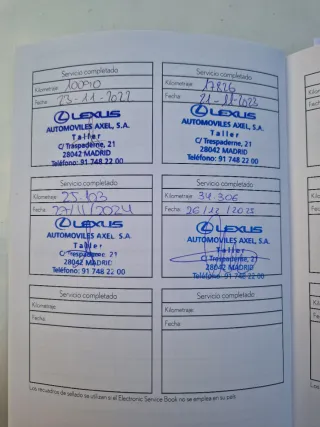 Servicio completado
Kilometraje: 10090
Fecha: 23-11-2022
LEXUS
AUTOMOVILES AXEL, S.A.
Taller
C/ Traspaderne, 21
28042 MADRID
Teléfono: 91 748 22 00
Servicio completado
Kilometraje: 17826
Fecha: 21-11-2023
LEXUS
AUTOMOVILES AXEL, S.A.
Taller
C/ Traspaderne, 21
28042 MADRID
Teléfono: 91 748 22 00
Servicio completado
Kilometraje: 25.103
Fecha: 27/11/2024
LEXUS
AUTOMOVILES AXEL, S.A.
Taller
C/ Traspaderne, 21
28042 MADRID
Teléfono: 91 748 22 00
Servicio completado
Kilometraje: 34.306
Fecha: 26/12/2025
LEXUS
AUTOMOVILES AXEL, S.A.
Taller
C/ Traspaderne, 21
28042 MADRID
Teléfono: 91 748 22 00
Servicio completado
Kilometraje:
Fecha:
Servicio completado
Kilometraje:
Fecha:
Los recuadros de sellado se utilizan si el Electronic Service Book no se emplea en su país.